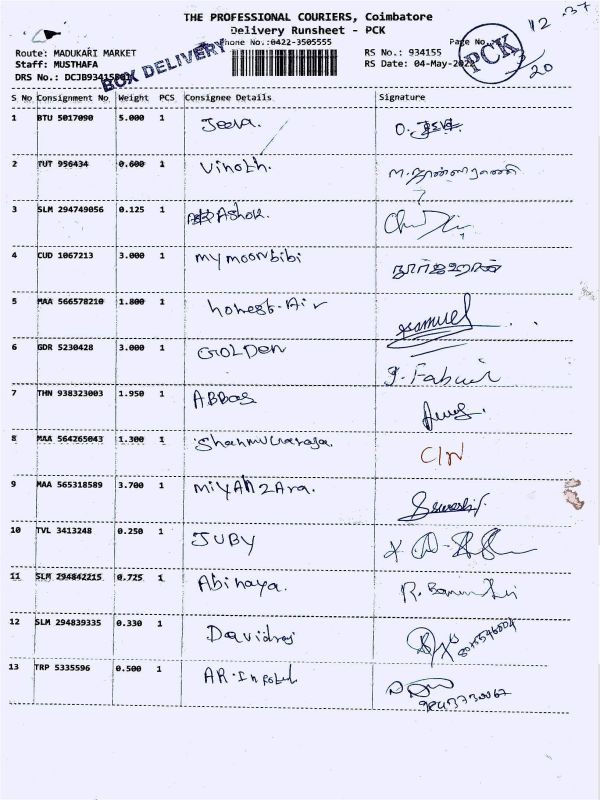 THE PROFESSIONAL COURIERS, Coimbatore
Delivery Runsheet - PCK
Phone No.:0422-3505555
Page No.
12 .37
PCK
3/20
Route: MADUKARI MARKET
RS No.: 934155
Staff: MUSTHAFA
RS Date: 04-May-2022
DRS No.: DCJB93415
BOX DELIVERY
S No Consignment No Weight PCS Consignee Details Signature
1 BTU 5017090 5.000 1 Jeeva.
2 TUT 956434 0.600 1 Vinoth.
3 SLM 294749056 0.125 1 Ashok.
4 CUD 1067213 3.000 1 mymoonbibi நூர்ஜஹான்
5 MAA 566578210 1.800 1 honest-Air Samuel
6 GDR 5230428 3.000 1 GOLDEN
7 THN 938323003 1.950 1 ABBas
8 MAA 564265043 1.300 1 Shanmugaraja. C/N
9 MAA 565318589 3.700 1 MiYAN ZAra.
10 TVL 3413248 0.250 1 JUBY
11 SLM 294842215 0.725 1 Abinaya.
12 SLM 294839335 0.330 1 Davidraj
13 TRP 5335596 0.500 1